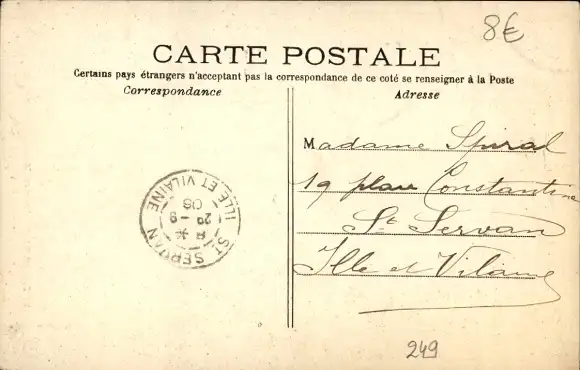 8€
CARTE POSTALE
Certains pays étrangers n'acceptant pas la correspondance de ce coté se renseigner à la Poste
Correspondance
Adresse
Madame Spiral
19 place Constantine
St Servan
Ille et Vilaine
ST SERVAN
29 - 9
06
ILLE ET VILAINE
249